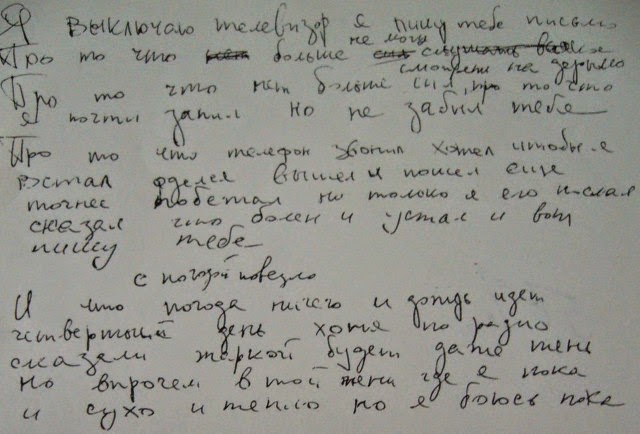 Я выключаю телевизор я пишу тебе письмо
не могу
Про то что нет больше сил слушать
смотреть на дерьмо
Про то что нет больше сил, про то что
я почти запил но не забыл тебя
Про то что телефон звонил хотел чтобы я
встал оделся вышел и пошел еще
точнее побежал но только я его послал
сказал что болен и устал и вот
пишу тебе
с погодой повезло
И что погода ничего и дождь идет
четвертый день хотя по радио
сказали жаркой будет даже тень
но впрочем в той тени где я пока
и сухо и тепло но я боюсь пока